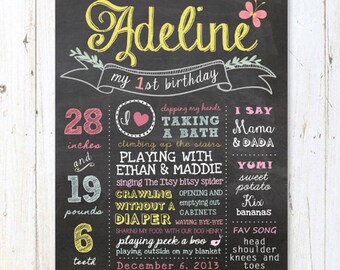 Adeline
my 1st birthday
28
inches
and
19
pounds
6
teeth
I
clapping my hands
TAKING
A BATH
climbing up the stairs
PLAYING WITH
ETHAN & MADDIE
singing The Itsy bitsy spider
CRAWLING
WITHOUT A
DIAPER
OPENING AND
emptying out
CABINETS
WAVING BYE-BYE
SHARING MY FOOD WITH OUR DOG HENRY
playing peek a boo
playing outside on my blanket
December 6, 2013
I SAY
Mama
& DADA
YUM!
sweet
potato
Kix
bananas
FAV SONG
head
shoulder
knees and
toes